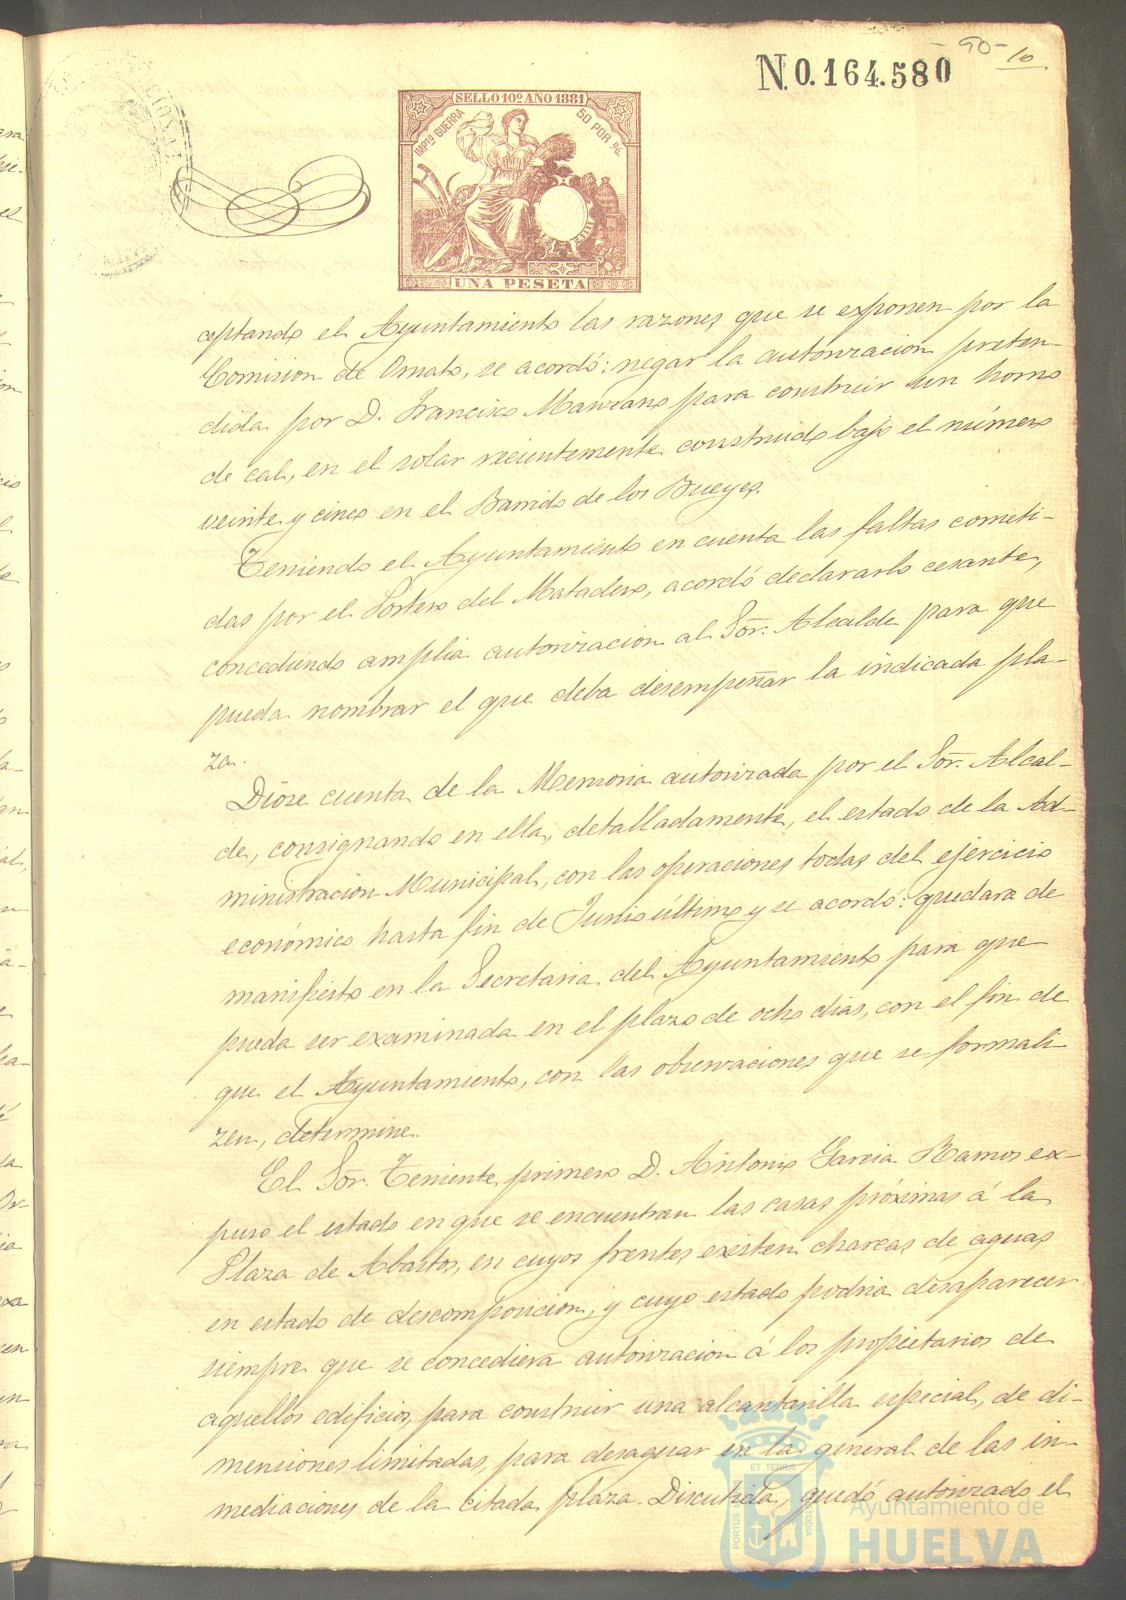 -90- 10
N.0.164.580
SELLO 10º AÑO 1881
IMPTO GUERRA 50 POR %.
UNA PESETA
ceptando el Ayuntamiento las razones que se exponen por la
Comision de Ornato, se acordó: negar la autorizacion preten-
dida por D. Francisco Manzano para construir un horno
de cal, en el solar recientemente construido bajo el número
veinte y cinco en el Barrido de los Bueyes.
Teniendo el Ayuntamiento en cuenta las faltas cometi-
das por el Portero del Matadero, acordó declararlo cesante,
concediendo amplia autorizacion al Sor. Alcalde para que
pueda nombrar el que deba desempeñar la indicada pla-
za.
Dióse cuenta de la Memoria autorizada por el Sor. Alcal-
de, consignando en ella, detalladamente, el estado de la Ad-
ministracion Municipal, con las operaciones todas del ejercicio
económico hasta fin de Junio último y se acordó: quedara de
manifiesto en la Secretaria del Ayuntamiento para que
pueda ser examinada en el plazo de ocho dias, con el fin de
que el Ayuntamiento, con las observaciones que se formali-
zen, determine.
El Sor. Teniente primero D. Antonio Garcia Ramos ex-
puso el estado en que se encuentran las casas próximas á la
Plaza de Abastos, en cuyos frentes existen charcas de aguas
en estado de descomposicion, y cuyo estado podria desaparecer
siempre que se concediera autorizacion á los propietarios de
aquellos edificios, para construir una alcantarilla especial, de di-
menciones limitadas, para desaguar en la general de las in-
mediaciones de la citada plaza. Discutida, quedó autorizado el
Ayuntamiento de
HUELVA